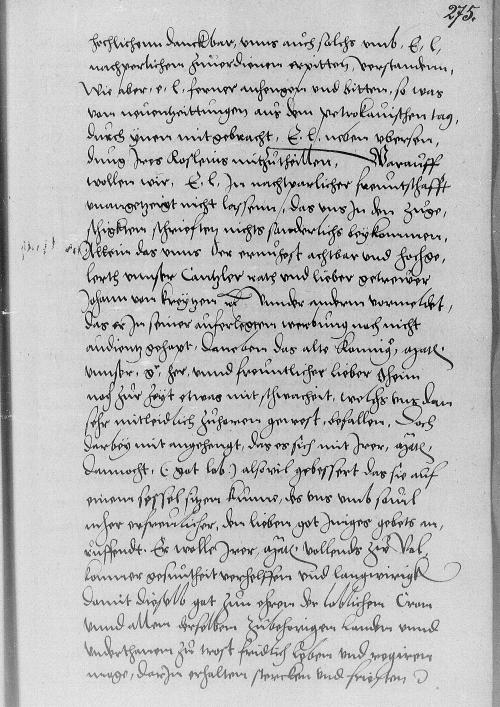 275.
hochlichenn danckbar, vnns auch solchs vmb E. L.
nachperlichen zuuerdienen erpitten verstandenn,
Wie aber e. l. ferner anhengen und bitten, so was
von neuenzeittungen aus dem petrokauischen tag,
durch ynen mitgebracht, E. L. neben vbersen,
dung Ires mitzutheilen, Warauff
wollen wir, E. L. In nachtparlicher freuntschafft
vnangezeigt nicht lassenn, das vns In den zuge,
schigkten schrifften nichts sunderlichs beykommen,
Allein das vnns der ernuhest achtbar und hochge,
lerth vnnser Cantzler rath vnd lieber getrewer
Johann von Kreytzen vnnder anderm vormeldet,
das er In seiner auferlegten werbung noch nicht
audientz gehapt, daneben das alte Konnig, mat.
vnnser, g. her, vnnd freuntlicher lieber Oheim
noch zur zeyt etwas mit schwacheit, welchs vns dan
sehr mitleidlich zuhoren gewest, befallen, Doch
darbey mit angehengt, das es sich mit Irer, mat.
dannocht, (: got lob :) alsouil gebessert das sie auf
einem sessel sitzen kunne, des vns vmb souil
mher erfreulicher, den lieben got Iniges gebets an,
ruffendt. Er wolle Irer, mat. vollends zur vol,
komner gesuntheit verhelffen vnd langwirigk
damit dieselb got zun ehren der loblichen Cron
vnnd allen derselben zubehorigen landen vnnd
vnderthanen zu trost fridlich leben und regiren
moge, darIn erhalten stercken vnd fristen